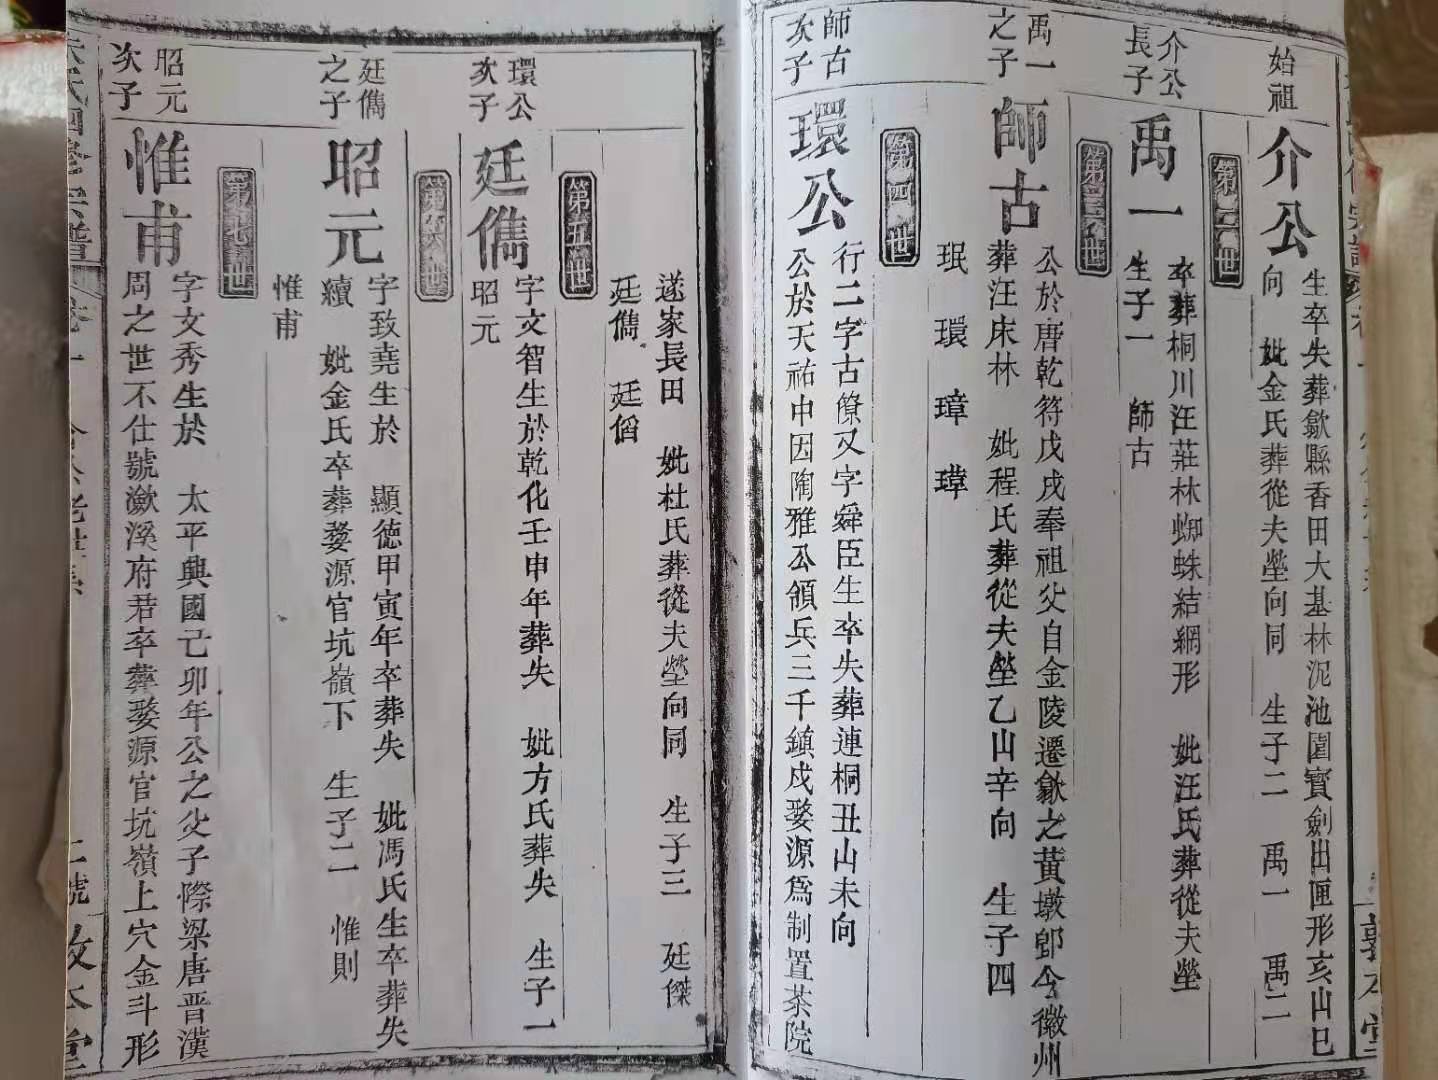 始祖
介公
生卒失葬歙縣香田大基林泥池圍寳劍出匣形亥山巳
向 妣金氏葬從夫塋向同 生子二 禹一 禹二
第二世
介公
長子
禹一
卒葬桐川汪莊林蜘蛛結網形 妣汪氏葬從夫塋
生子一 師古
第三世
禹一
之子
師古
公於唐乾符戊戌奉祖父自金陵遷歙之黃墩卽今徽州
葬汪床林 妣程氏葬從夫塋乙山辛向 生子四
珉 環 璋 瑋
第四世
師古
次子
環公
行二字古僚又字舜臣生卒失葬連桐丑山未向
公於天祐中因陶雅公領兵三千鎮戍婺源為制置茶院
遂家長田 妣杜氏葬從夫塋向同 生子三 廷傑
廷儁 廷偤
第五世
環公
次子
廷儁
字文智生於乾化壬申年葬失 妣方氏葬失 生子一
昭元
第六世
廷儁
之子
昭元
字致堯生於 顯德甲寅年卒葬失 妣馮氏生卒葬失
續 妣金氏卒葬婺源官坑嶺下 生子二 惟則
惟甫
第七世
昭元
次子
惟甫
字文秀生於 太平興國己卯年公之父子際梁唐晉漢
周之世不仕號歙溪府君卒葬婺源官坑嶺上穴金斗形